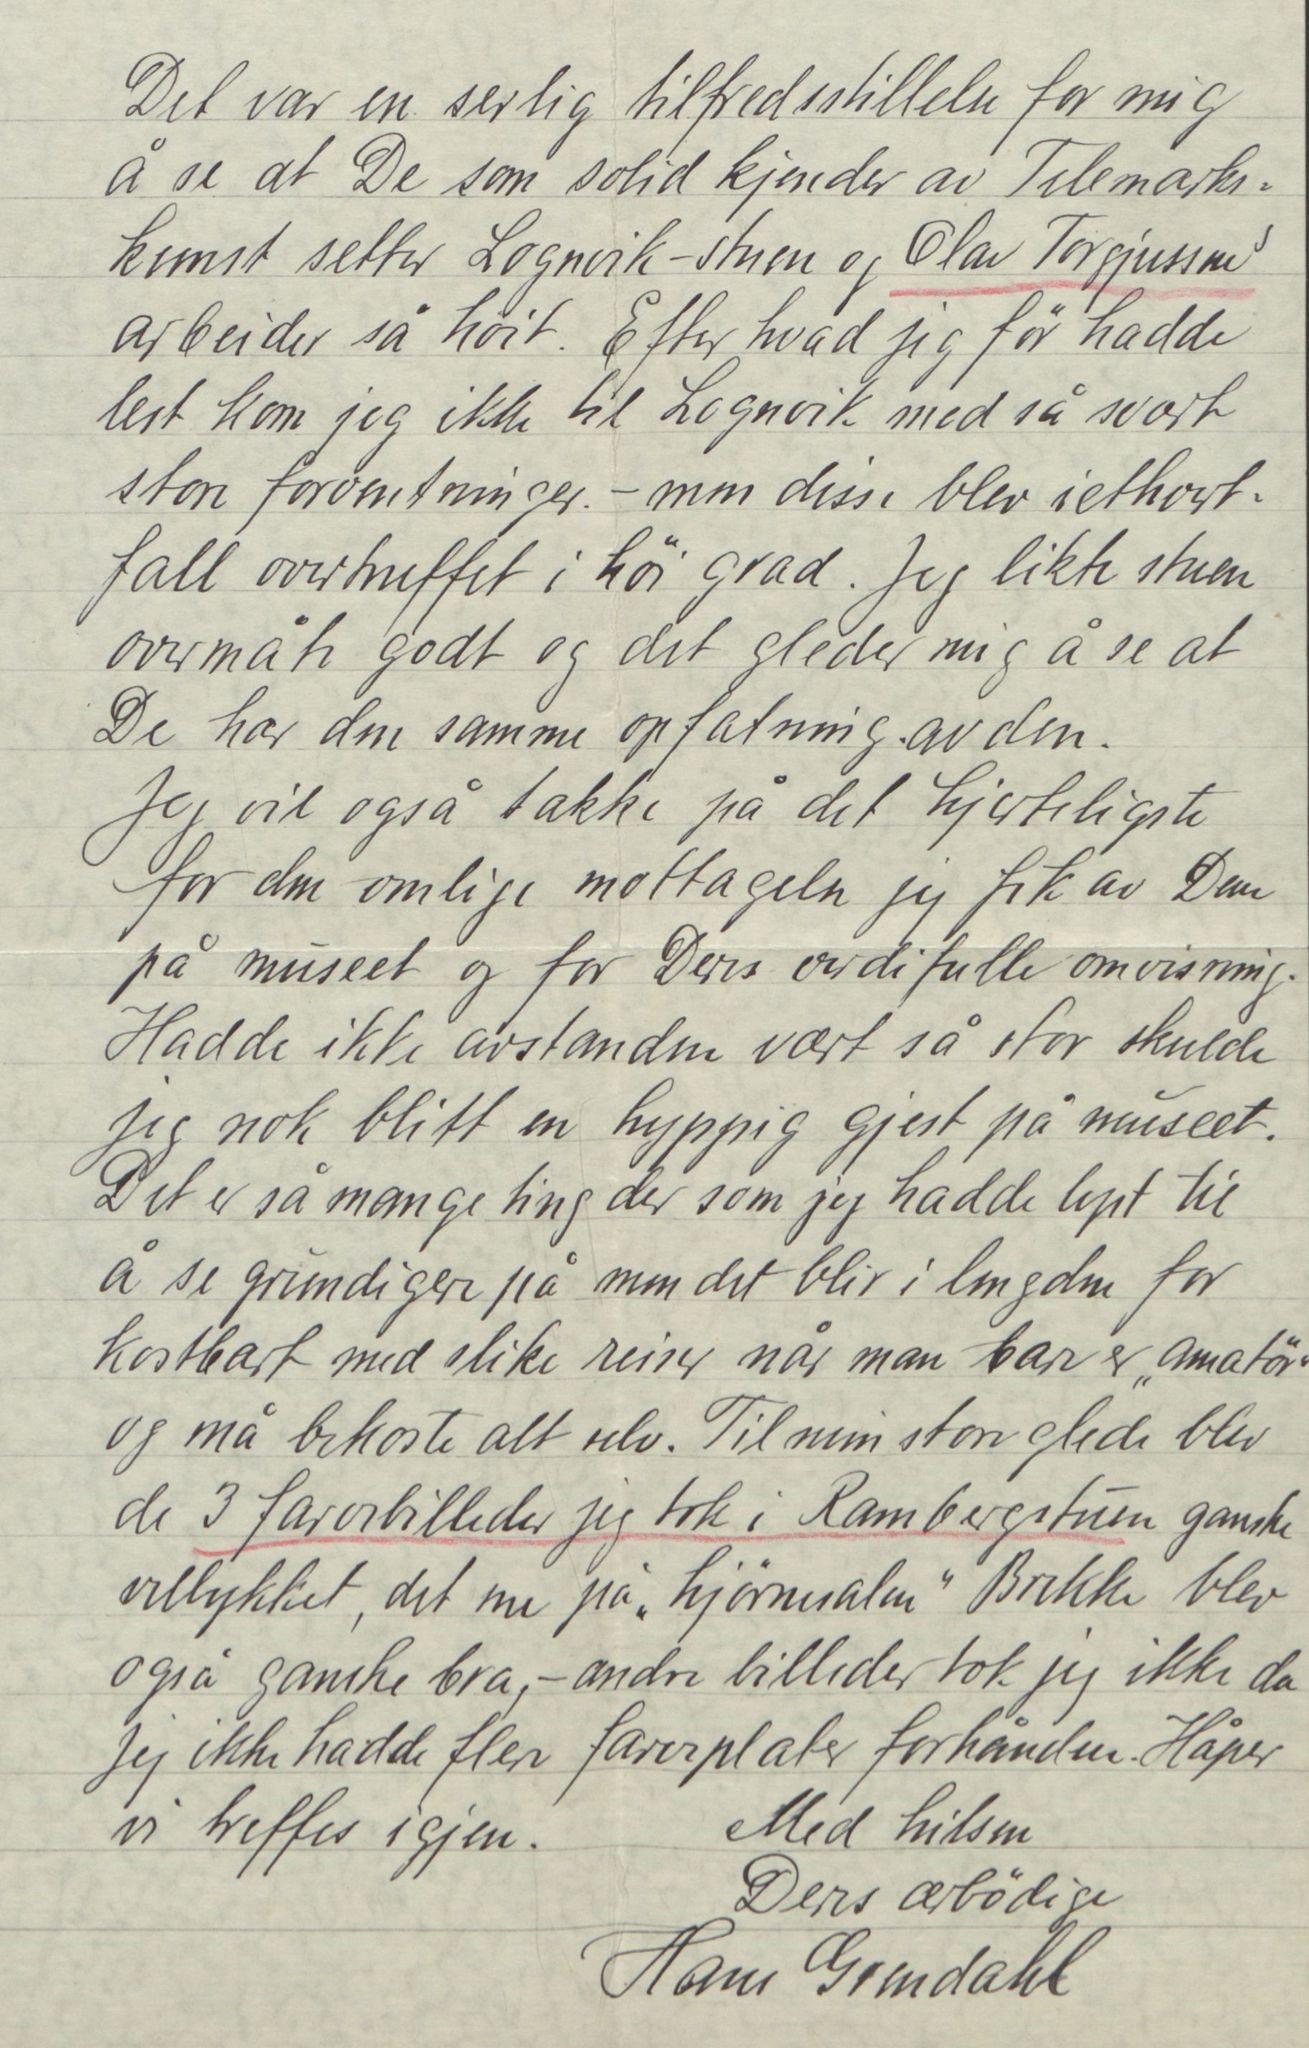 Det var en serlig tilfredsstillelse for mig
å se at De som solid kjender av Telemarks-
kunst setter Lognvik-stuen og Olav Torgjussens
arbeider så höit. Efter hvad jeg för hadde
lest kom jeg ikke til Lognvik med så svært
store forventninger. - men disse blev iethvert-
fall overtruffet i höi grad. Jeg likte stuen
overmåte godt og det gleder mig å se at
De har den samme opfatning av den.
Jeg vil også takke på det hjerteligste
for den omlige mottagelse jeg fik av Dem
på museet og for Deres verdifulle omvisning.
Hadde ikke avstanden vært så stor skulde
jeg nok blitt en hyppig gjest på museet.
Det er så mange ting der som jeg hadde lyst til
å se grundigere på men det blir i lengden for
kostbart med slike reiser når man bare er „amatör"
og må bekoste alt selv. Til min store glede blev
de 3 farvebilleder jeg tok i Rambergstuen ganske
vellykket, det ene på „hjörnesalen" Brekke blev
også ganske bra, - andre billeder tok jeg ikke da
jeg ikke hadde flere farveplater forhånden. Håper
vi treffes igjen.
Med hilsen
Deres ærbödige
Hans Grendahl